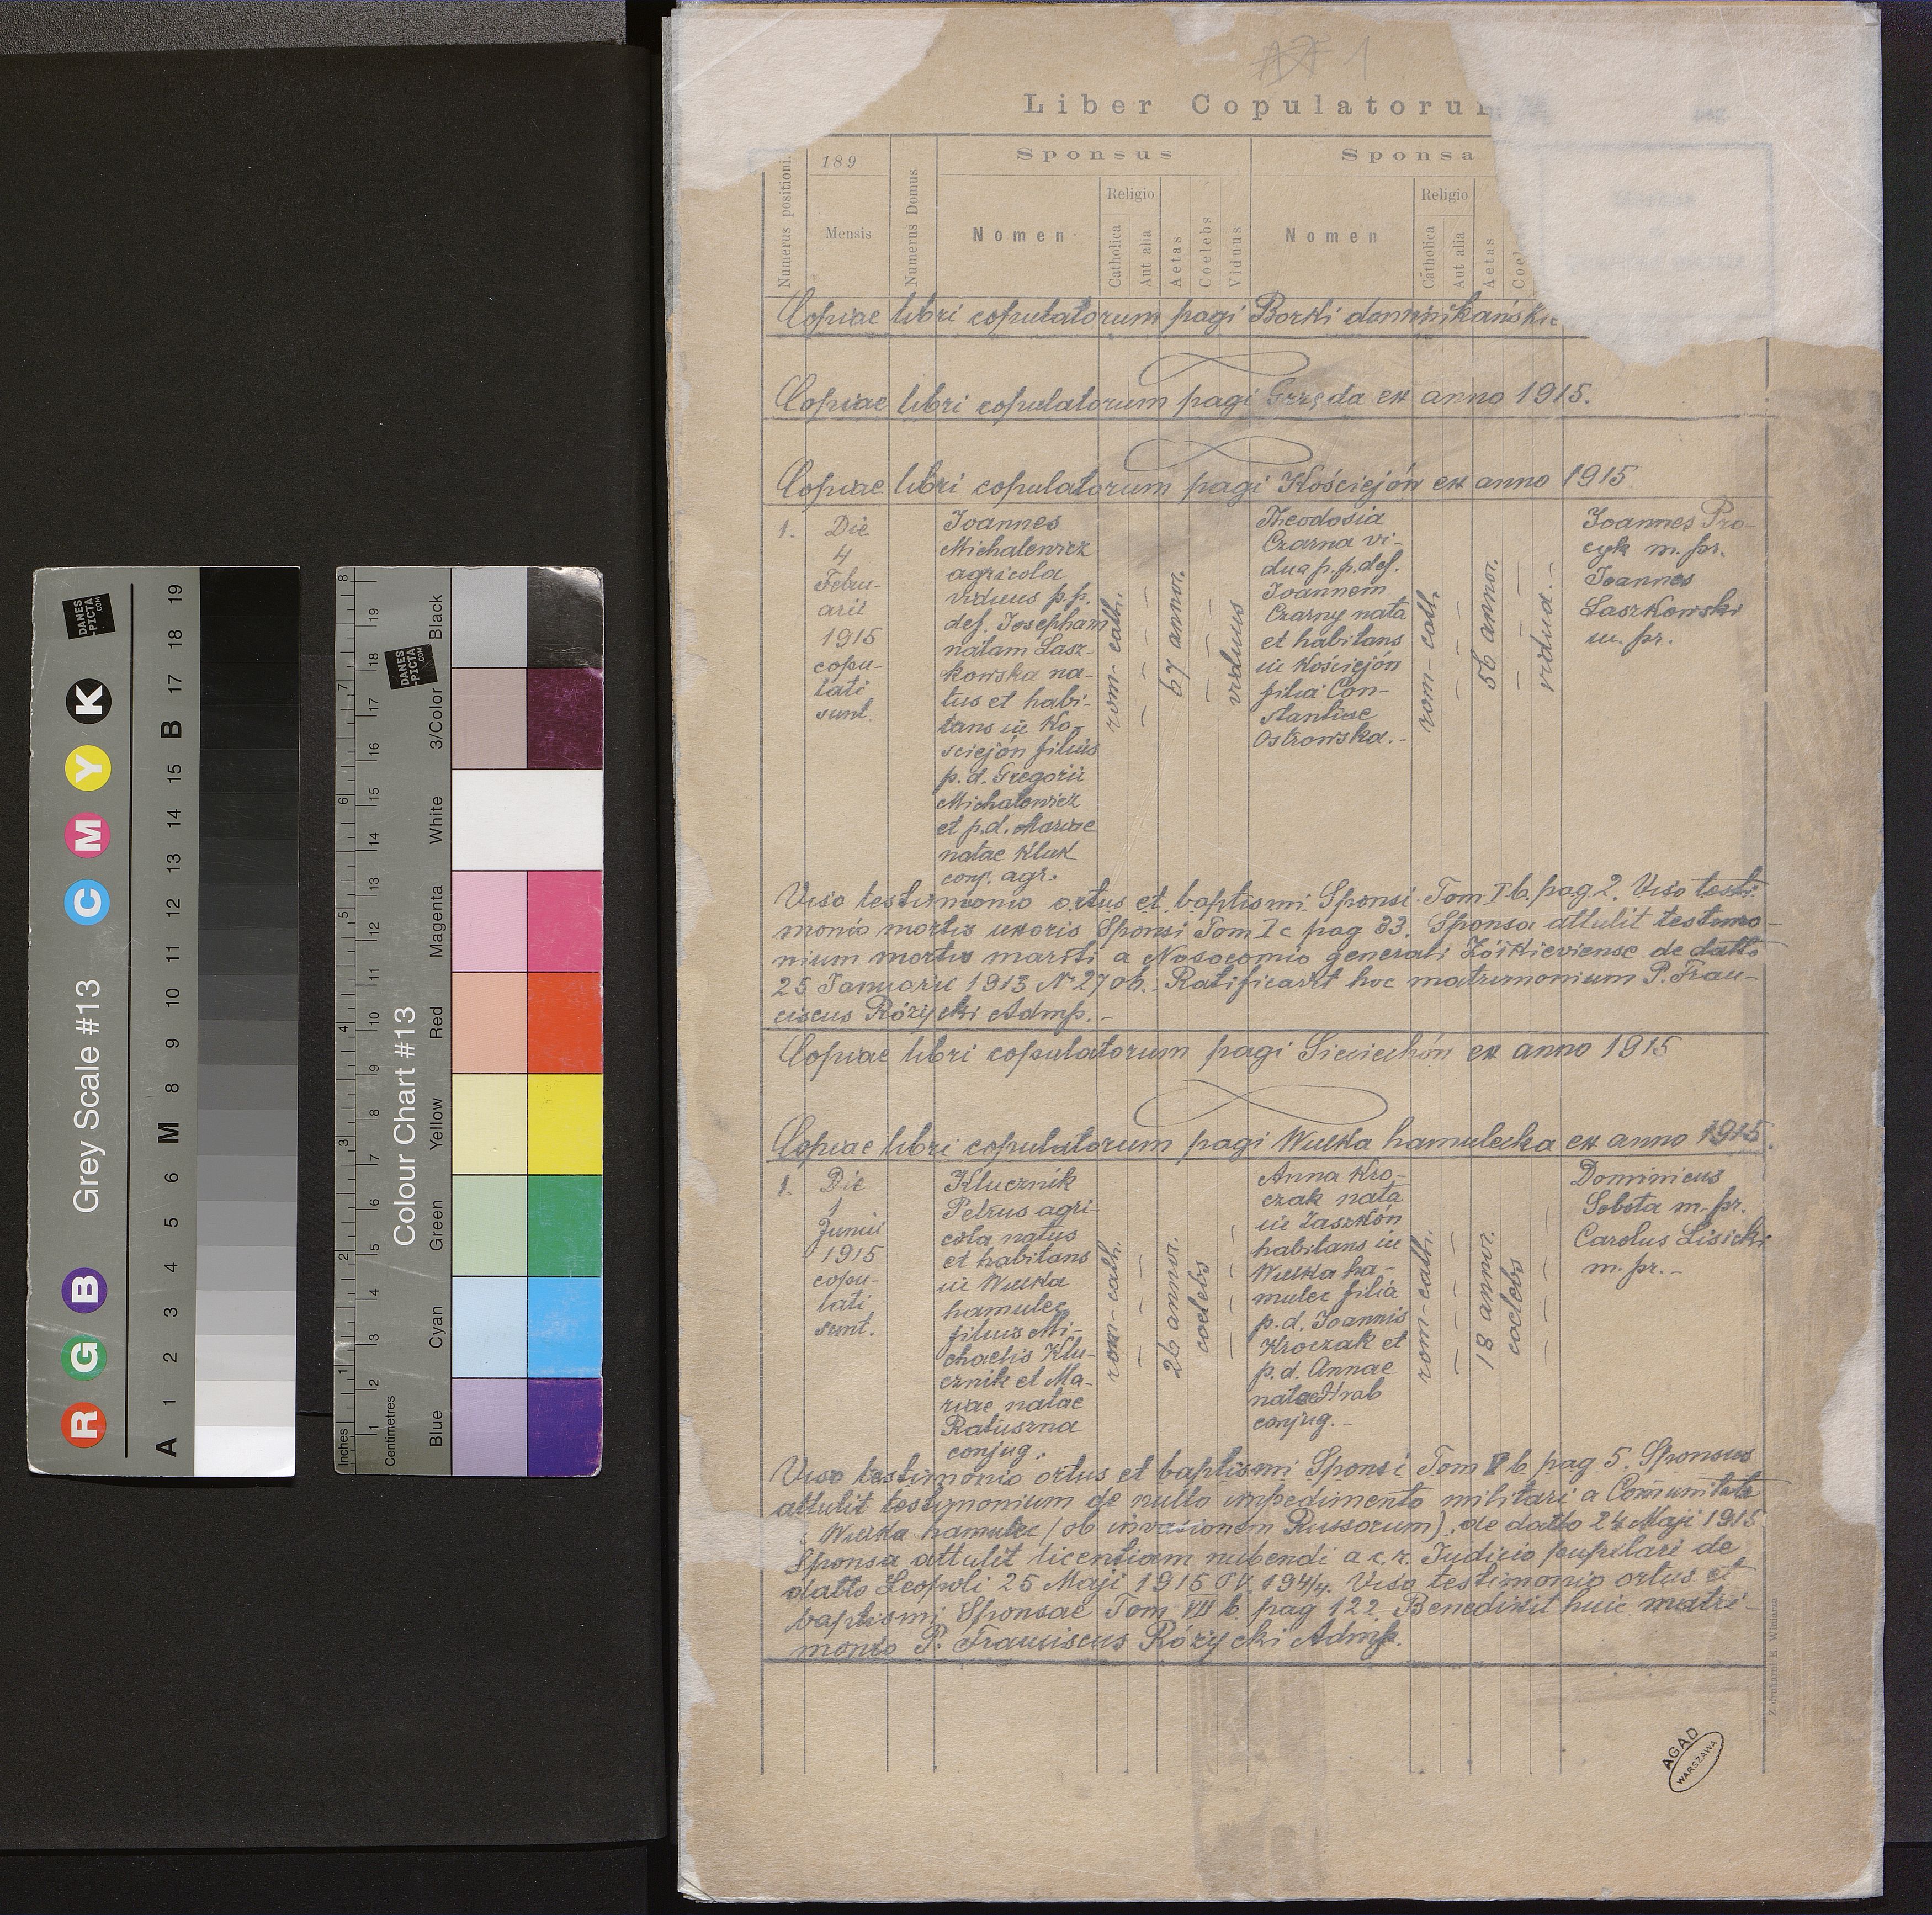 Liber Copulatoru
Numerus positioni.
189
Mensis
Numerus Domus
Sponsus
Nomen
Religio
Catholica
Aut alia
Aetas
Coelebs
Viduus
Sponsa
Nomen
Religio
Catholica
Aut alia
Aetas
Coel
Copiae libri copulatorum pagi Borki dominikańskie
Copiae libri copulatorum pagi Grzęda ex anno 1915.
Copiae libri copulatorum pagi Kościejów ex anno 1915
1.
Die
4
Febru-
arii
1915
copu-
lati
sunt.
Joannes
Michalewicz
agricola
viduus p.p.
def. Josepham
natam Lasz-
kowska na-
tus et habi-
tans in Ko-
sciejón filius
p.d. Gregorii
Michalowicz
et p.d. Mariae
natae Kluk
conj. agr.
rom-cath.
67 annor.
viduus
Theodosia
Czarna vi-
dua p.p. def.
Joannem
Czarny nata
et habitans
in Kościejón
filia Con-
stantiae
Ostrowska.-
rom-cath.
56 annor.
vidua.-
Joannes Pro-
cyk m. pr.
Joannes
Laszkowski
m. pr.
Viso testimonio ortus et baptismi Sponsi Tom I b. pag 2. Viso testi-
monio mortis uxoris Sponsi Tom I c pag 33. Sponsa attulit testimo-
nium mortis mariti a Nosocomio generali Żółkieviense de datto
25 Januarii 1913 № 2706. Ratificavit hoc matrimonium P. Fran-
ciscus Różycki Admp.-
Copiae libri copulatorum pagi Sieciechón ex anno 1915
Copiae libri copulatorum pagi Wielka hamulecka ex anno 1915.
1.
Die
1
Junii
1915
copu-
lati
sunt.
Klucznik
Petrus agri-
cola natus
et habitans
in Wielka
hamulec
filius Mi-
chaelis Klu-
cznik et Ma-
riae natae
Ratuszna
conjug.
rom-cath.
26 annor.
coelebs
Anna Kro-
czak nata
in Zaszkón
habitans in
Wielka ha-
mulec filia
p.d. Joannis
Kroczak et
p.d. Annae
natae Hrab
conjug.-
rom-cath.
18 annor.
coelebs
Dominicus
Sobota m. pr.
Carolus Lisicki
m. pr.-
Viso testimonio ortus et baptismi Sponsi Tom I b. pag 5. Sponsus
attulit testimonium de nullo impedimento militari a Comunitate
Wielka hamulec (ob invasionem Russorum) de datto 24 Maji 1915
Sponsa attulit licentiam nubendi a c. r. Judicio pupilari de
datto Leopoli 25 Maji 1915 Viso testimonio ortus et
baptismi Sponsae Tom VIII b. pag 122. Benedixit huic matri-
monio P. Franciscus Różycki Admp.
Z drukarni E. Winiarza
AGAD
WARSZAWA
Grey Scale #13
R G B C M Y K
A 1 2 3 4 5 6 M 8 9 10 11 12 13 14 15 B 17 18 19
DANES
-PICTA
.COM
Colour Chart #13
Inches
Centimetres
Blue Cyan Green Yellow Red Magenta White 3/Color Black
DANES
-PICTA
.COM